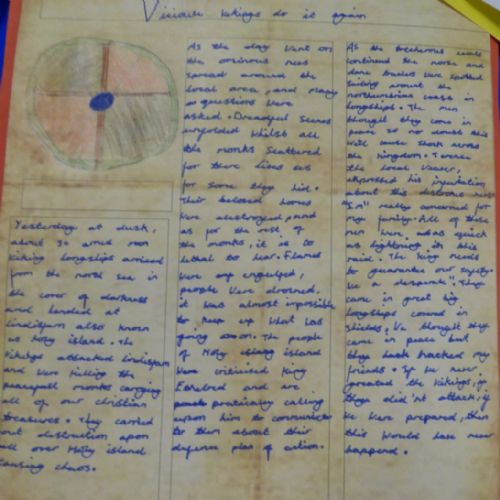 Vicious vikings do it again
Yesterday at dusk,
about 30 armed men
viking longships arrived
from the north sea in
the cover of darkness
and landed at
lindisfarn also known
as Holy island. The
vikings attacked lindisfarn
and were killing the
peacefull monks carrying
all of our christian
treasures. They carried
out distruction upon
all over Holy island
causing chaos.
As the day went on
the ominous news
spread around the
local area, and many
questions were
asked. Dreadful scenes
unfolded whilst all
the monks scattered
for there lives as
for some they hid.
Their beloved homes
were destroyed, and
as for the rest of
the monks, it is to
lethal to hear. Flames
were engulfed,
people were drowned,
it was almost impossible
to keep up what was
going on. The people
of Holy island
were
and are
practicaly calling
upon him to
to them about this
defense plan of action.
As the treacherous
continued the norse and
dane traders were spotted
sailing around the
northumbrian coast in
longships. The men
thought they come in
peace so no doubt this
will cause shock across
the Kingdom.
the local
expressed his
about this
"I'm" really concerned for
my family. All of those
men were as quick
as lightning in this
raid. The king needs
to guarantee our safety
we a desperate. They
came in great big
longships covered in
shields. We thought they
came in peace but
they hacked my
friends. If he never
greeted the vikings, if
they did'nt attack, if
we were prepared, then
this would have never
happened.